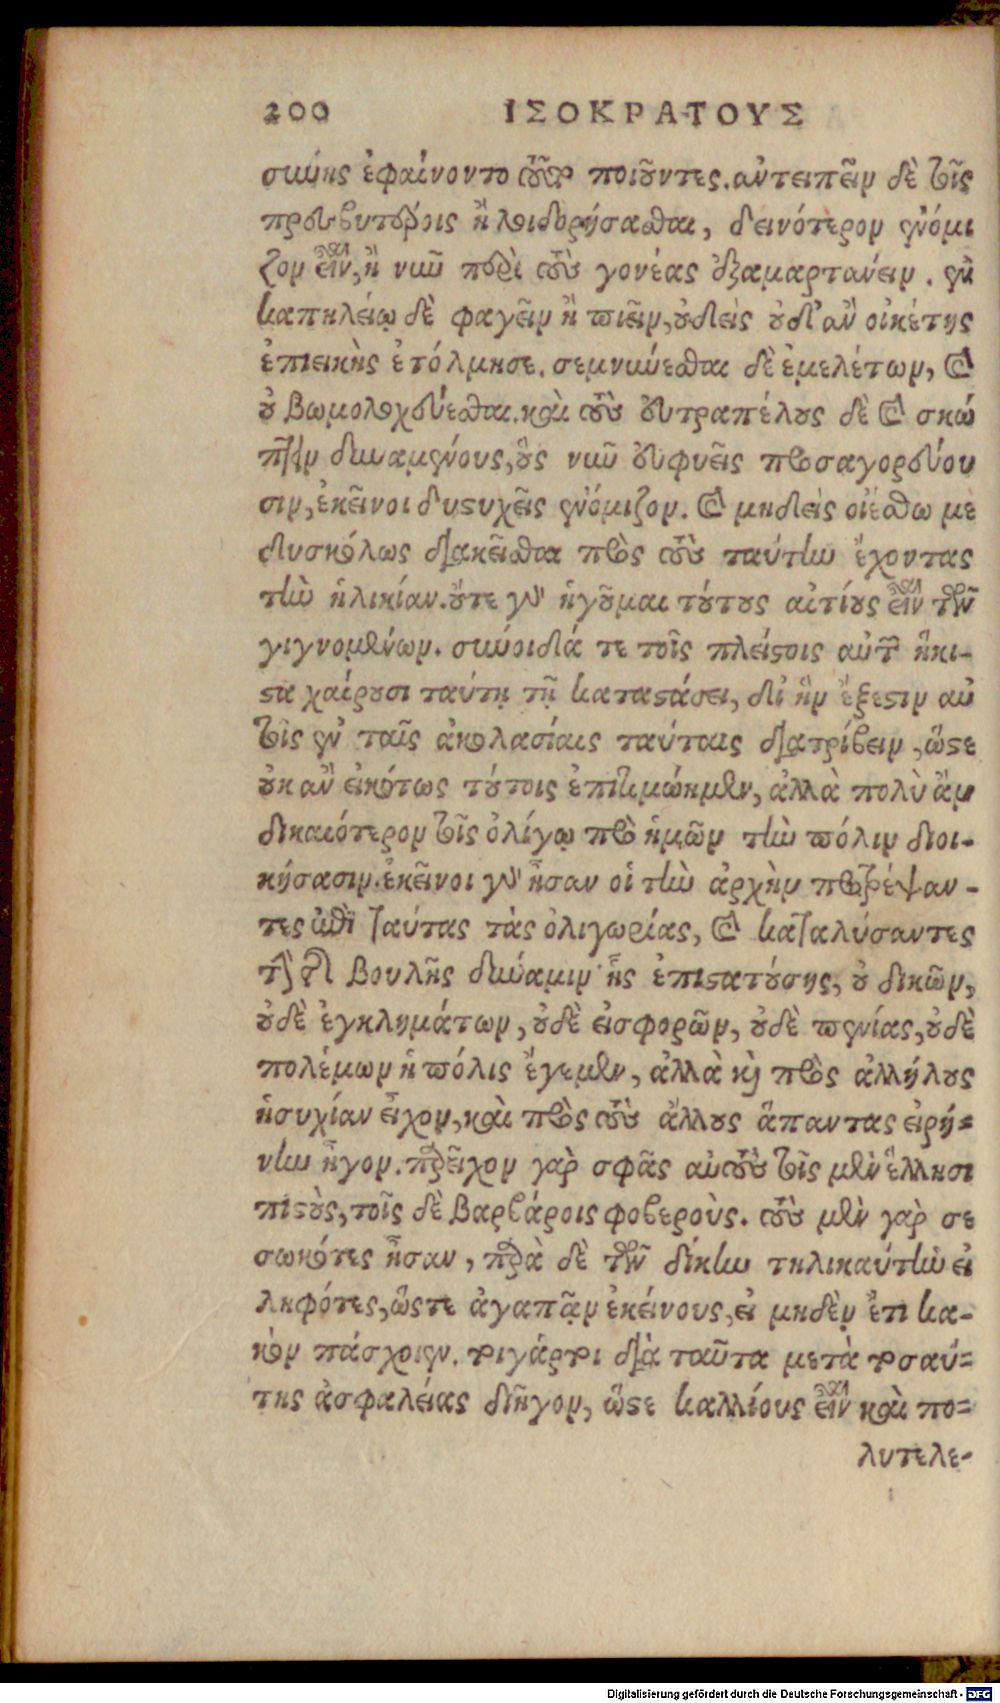 200 ΙΣΟΚΡΑΤΟΥΣ
σύνης ἐφαίνοντο τοῦτο ποιοῦντες. ἀντειπεῖν δὲ τοῖς
πρεσβυτέροις ἢ λοιδορήσασθαι, δεινότερον ἐνόμι
ζον εἶναι, ἢ νῦν περὶ τοὺς γονέας ἐξαμαρτάνειν. ἐν
καπηλείῳ δὲ φαγεῖν ἢ πιεῖν, οὐδεὶς οὐδ' ἂν οἰκέτης
ἐπιεικὴς ἐτόλμησε. σεμνύνεσθαι δὲ ἐμελέτων, καὶ
οὐ βωμολοχεύεσθαι. καὶ τοὺς εὐτραπέλους δὲ καὶ σκώ
πτειν δυναμένους, οὓς νῦν εὐφυεῖς προσαγορεύου
σιν, ἐκεῖνοι δυστυχεῖς ἐνόμιζον. καὶ μηδεὶς οἰέσθω με
δυσκόλως διακεῖσθαι πρὸς τοὺς ταύτην ἔχοντας
τὴν ἡλικίαν. οὔτε γὰρ ἡγοῦμαι τούτους αἰτίους εἶναι τῶν
γιγνομένων. σύνοιδά τε τοῖς πλείστοις αὐτῶν ἥκι-
στα χαίρουσι ταύτῃ τῇ καταστάσει, δι' ἣν ἔξεστιν αὐ
τοῖς ἐν ταῖς ἀκολασίαις ταύταις διατρίβειν, ὥστε
οὐκ ἂν εἰκότως τούτοις ἐπιτιμῴημεν, ἀλλὰ πολὺ ἂν
δικαιότερον τοῖς ὀλίγῳ πρὸ ἡμῶν τὴν πόλιν διοι-
κήσασιν. ἐκεῖνοι γὰρ ἦσαν οἱ τὴν ἀρχὴν προτρέψαν-
τες ἐπὶ ταύτας τὰς ὀλιγωρίας, καὶ καταλύσαντες
τὴν τῆς βουλῆς δύναμιν· ἧς ἐπιστατούσης, οὐ δικῶν,
οὐδὲ ἐγκλημάτων, οὐδὲ εἰσφορῶν, οὐδὲ πενίας, οὐδὲ
πολέμων ἡ πόλις ἔγεμεν, ἀλλὰ καὶ πρὸς ἀλλήλους
ἡσυχίαν εἶχον, καὶ πρὸς τοὺς ἄλλους ἅπαντας εἰρή-
νην ἦγον. παρεῖχον γὰρ σφᾶς αὐτοὺς τοῖς μὲν ἕλλησι
πιστοὺς, τοῖς δὲ βαρβάροις φοβερούς. τοὺς μὲν γὰρ σε
σωκότες ἦσαν, παρὰ δὲ τῶν δίκην τηλικαύτην εἰ
ληφότες, ὥστε ἀγαπᾷν ἐκείνους, εἰ μηδὲν ἔτι κα-
κὸν πάσχοιεν. τοιγάρτοι διὰ ταῦτα μετὰ τοσαύ-
της ἀσφαλείας διῆγον, ὥστε καλλίους εἶναι καὶ πο-
λυτελε-
Digitalisierung gefördert durch die Deutsche Forschungsgemeinschaft - DFG